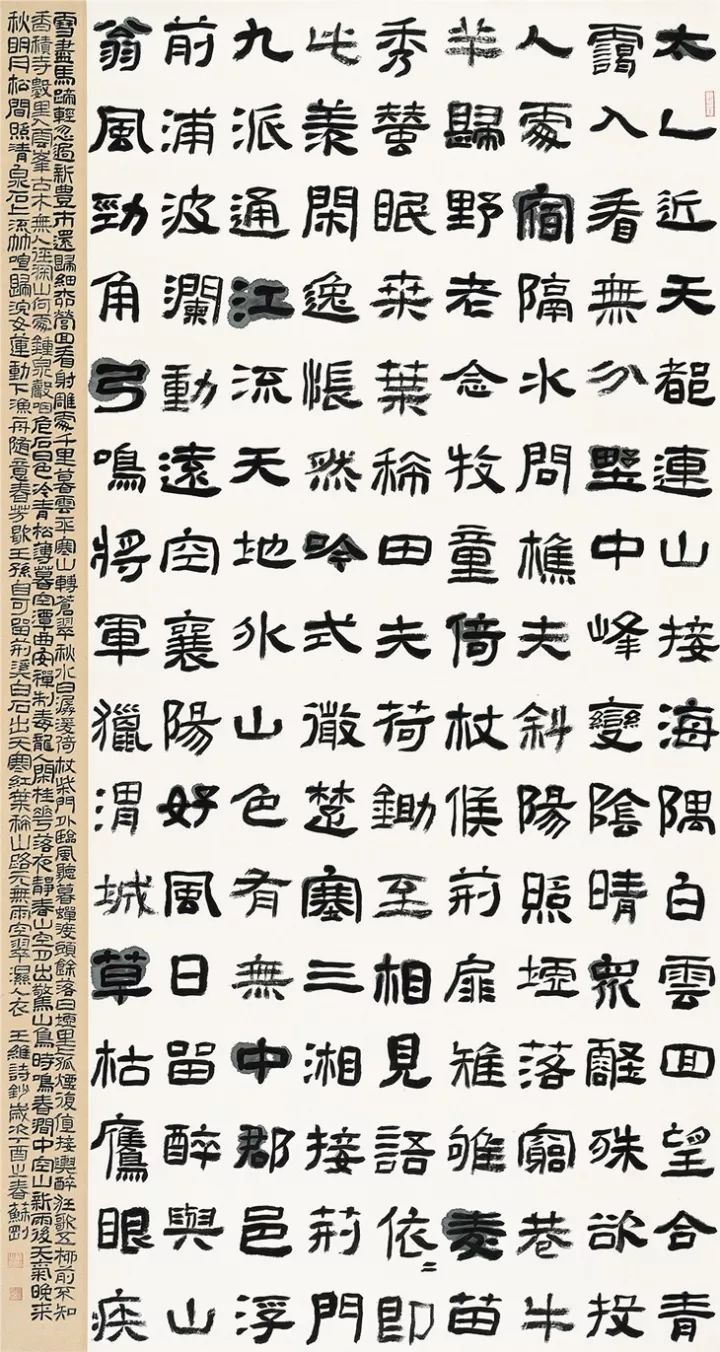 太乙近天都連山接海隅白雲回望合青
靄入看無分野中峰變陰晴眾壑殊欲投
人處宿隔水問樵夫斜陽照墟落窮巷牛
羊歸野老念牧童倚杖候荊扉雉雊麥苗
秀蠶眠桑葉稀田夫荷鋤至相見語依=即
此羨閑逸悵然吟式微楚塞三湘接荊門
九派通江流天地外山色有無中郡邑浮
前浦波瀾動遠空襄陽好風日留醉與山
翁風勁角弓鳴將軍獵渭城草枯鷹眼疾
雪盡馬蹄輕忽過新豐市還歸細柳營回看射雕處千里暮雲平寒山轉蒼翠秋水日潺湲倚杖柴門外臨風聽暮蟬渡頭餘落日墟里孤煙復值接輿醉狂歌五柳前不知
香積寺數里入雲峰古木無人徑深山何處鐘泉聲咽危石日色冷青松薄暮空潭曲安禪制毒龍人閑桂花落夜靜春山空月出驚山鳥時鳴春澗中空山新雨後天氣晚來
秋明月松間照清泉石上流竹喧歸浣女蓮動下漁舟隨意春芳歇王孫自可留荊溪白石出天寒紅葉稀山路元無雨空翠濕人衣 王維詩鈔歲次丁酉之春蘇剛